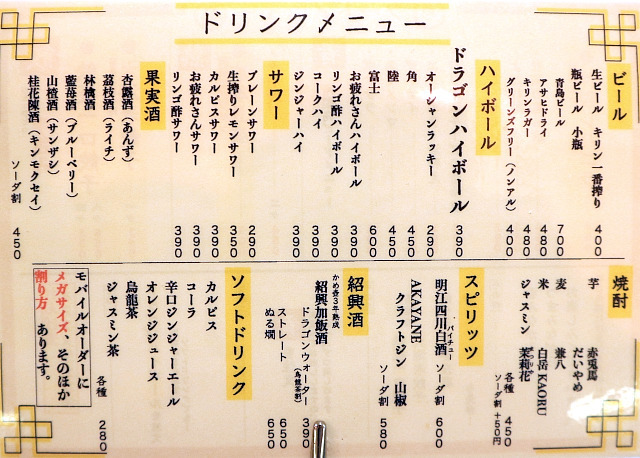 ドリンクメニュー
ビール
生ビール キリン一番搾り 400
瓶ビール 小瓶
青島ビール 700
アサヒドライ 480
キリンラガー 480
グリーンズフリー（ノンアル） 400
ハイボール
ドラゴンハイボール 390
オーシャンラッキー 290
角 450
陸 450
富士 600
お疲れさんハイボール 390
リンゴ酢ハイボール 390
コークハイ 390
ジンジャーハイ 390
サワー
プレーンサワー 290
生搾りレモンサワー 350
カルピスサワー 390
お疲れさんサワー 390
リンゴ酢サワー 390
果実酒
杏露酒（あんず）
茘枝酒（ライチ）
林檎酒
藍苺酒（ブルーベリー）
山樝酒（サンザシ）
桂花陳酒（キンモクセイ）
ソーダ割 450
焼酎
芋 赤兎馬
だいやめ
麦 兼八
米 白岳KAORU
ジャスミン 茉莉花
各種 450
ソーダ割 +50円
スピリッツ
明江四川白酒 ソーダ割 600
パイチュー
AKAYANE
クラフトジン 山椒
ソーダ割 580
紹興酒
かめ壺3年熟成
紹興加飯酒
ドラゴンウォーター（烏龍茶割） 390
ストレート 650
ぬる燗 650
ソフトドリンク
カルピス
コーラ
辛口ジンジャーエール
オレンジジュース
烏龍茶
ジャスミン茶
各種 280
モバイルオーダーに
メガサイズ、そのほか
割り方 あります。